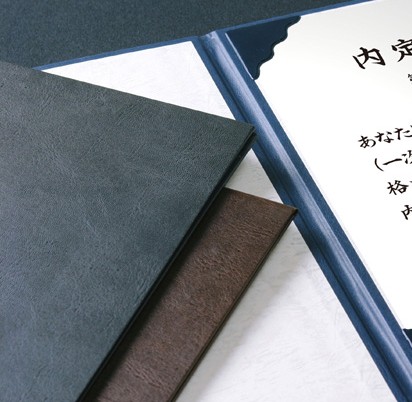 内定
あなた
(一次
格
内